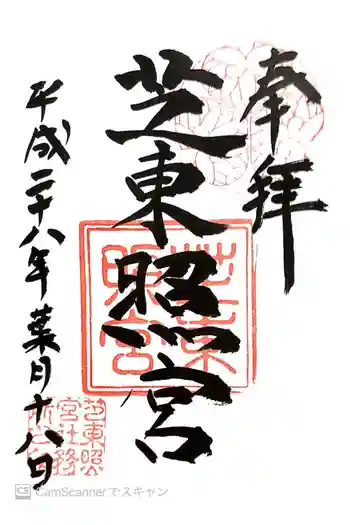 奉拝
芝東照宮
芝東照宮
平成二十八年葉月十八日
芝東照
宮社務
所之印
CS CamScannerでスキャン